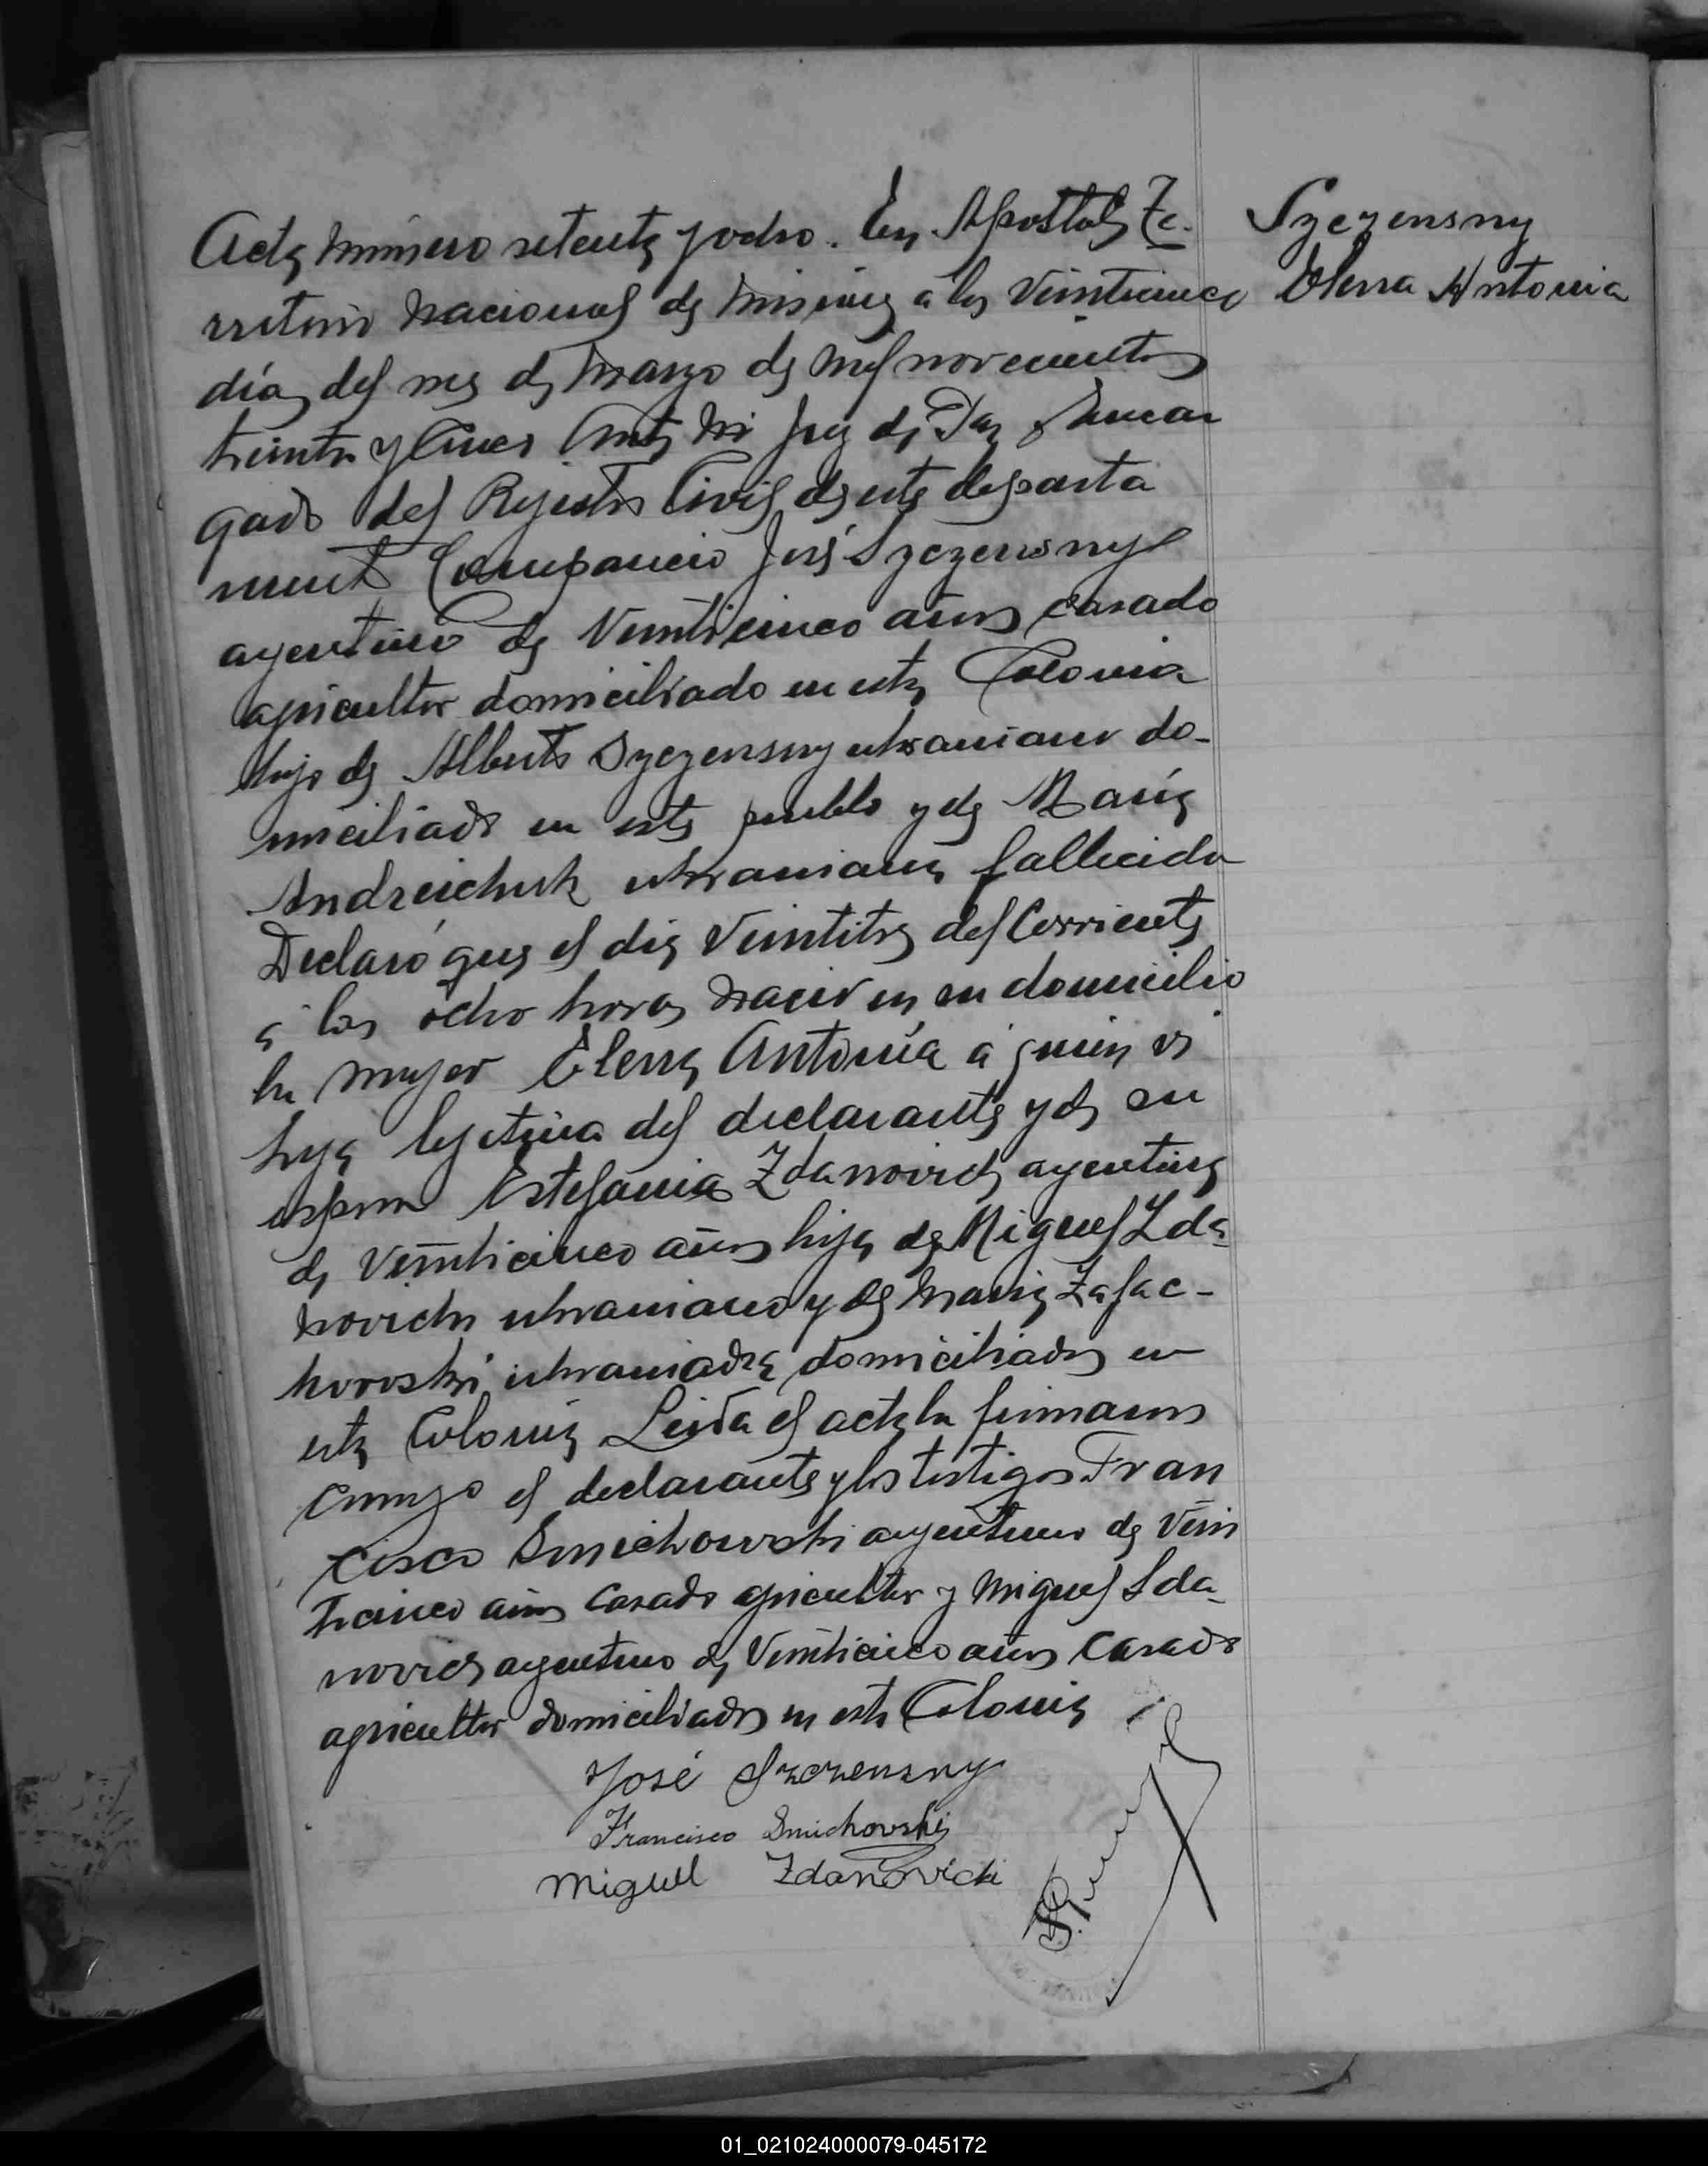 Acta número setenta y ocho. En Apostoles Te-
rritorio Nacional de Misiones a los Veinticinco
días del mes de Marzo de mil novecientos
treinta y Cinco Ante Mi Juez de Paz y Encar
gado del Registro Civil de este departa
mento Compareció José Szezensny
argentino de Veinticinco años casado
agricultor domiciliado en esta Colonia
hijo de Alberto Szezensny ukraniano do-
miciliado en este pueblo y de María
Andreichuk ukraniana fallecida
Declaró que el día Veintitres del Corriente
a las ocho horas nació en su domicilio
la mujer Elena Antonia a quien es
hija legítima del declarante y de su
esposa Estefania Zdanovich argentina
de Veinticinco años hija de Miguel Zda-
novich ukraniano y de Maria
ukraniana domiciliados en
esta Colonia Leida el acta la firmaron
conmigo el declarante y los testigos Fran
cisco Smichowski argentino de Vein
ticinco años casado agricultor y Miguel Sda-
novich argentino de Veinticinco años casado
agricultor domiciliados en esta Colonia
José Szczensny
Francisco Smichovski
Miguel Zdanovich
Szezensny
Elena Antonia
01_021024000079-045172